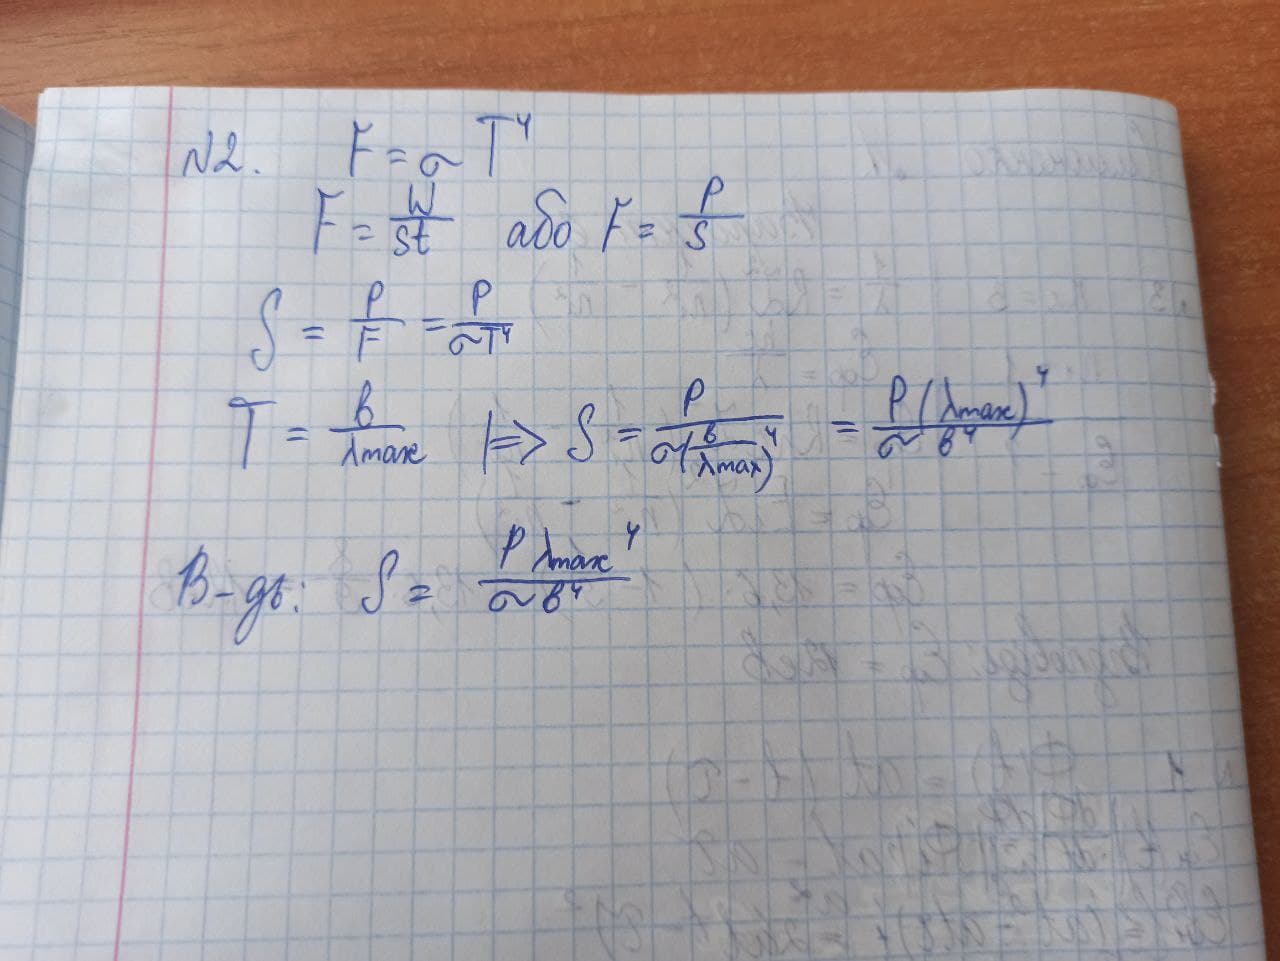 N2. F = σ T⁴
F = W/St або F = P/S
S = P/F = P/σT⁴
T = в/λmax |⇒ S = P/σ(в/λmax)⁴ = P(λmax)⁴/σ в⁴
В-дь: S = P λmax⁴/σ в⁴